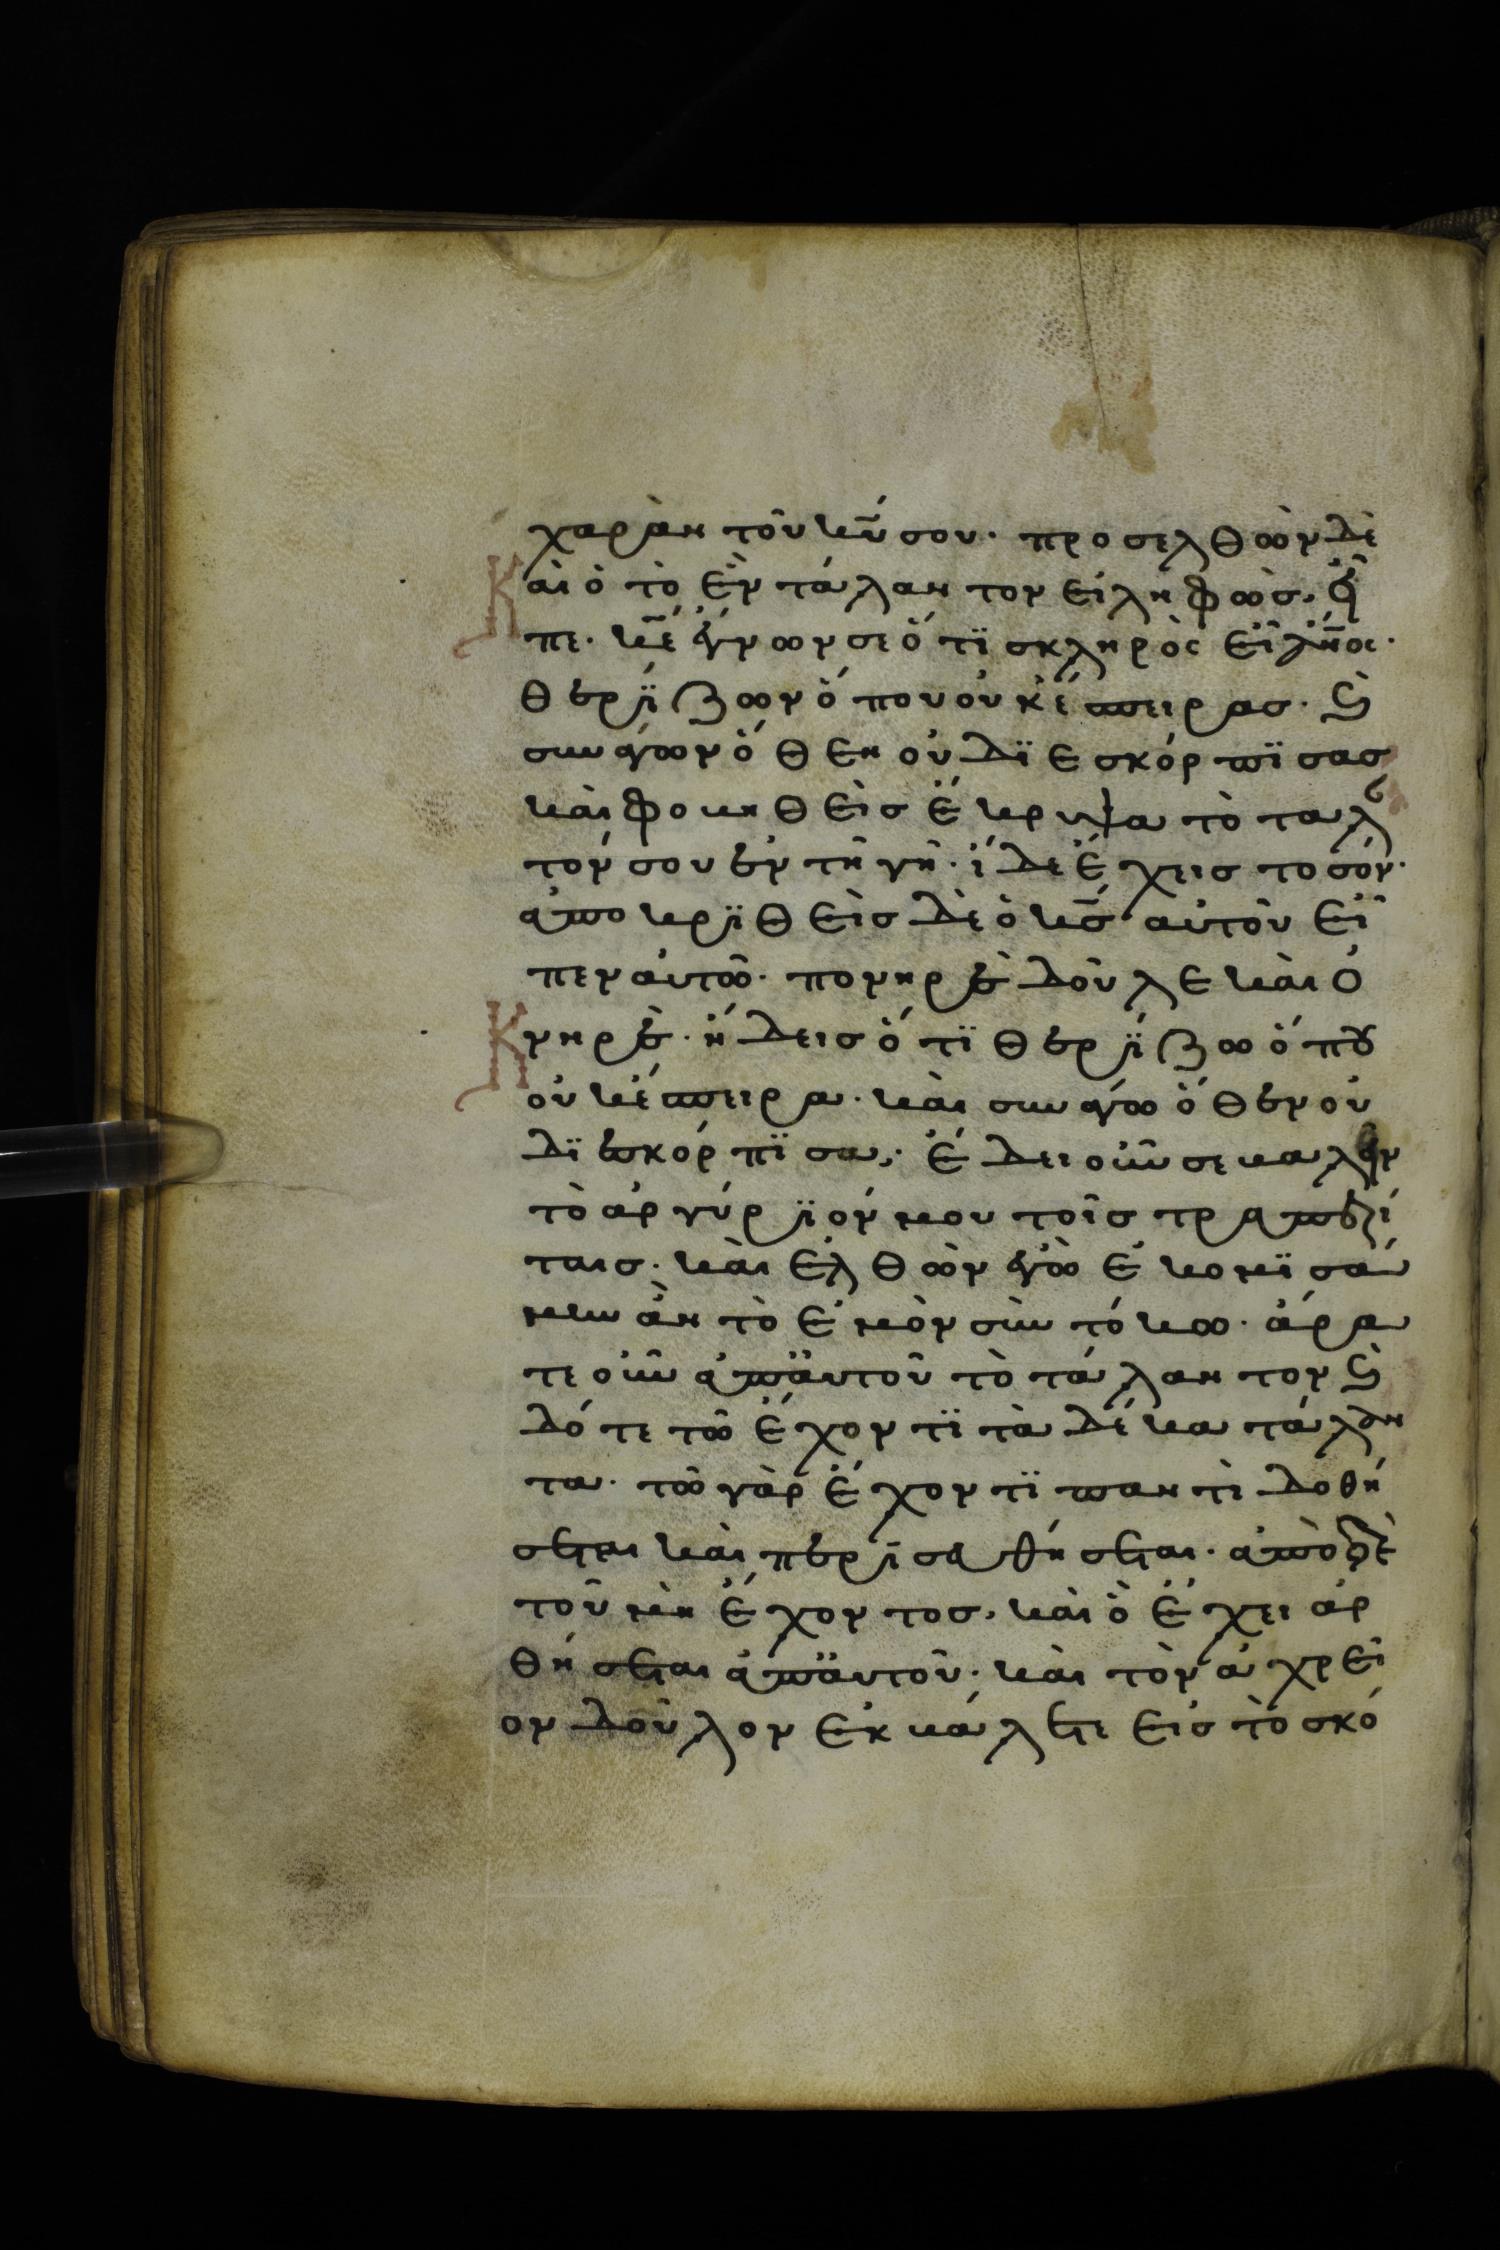 χαρὰν τοῦ κῡ σου· προσελθὼν δὲ
Καὶ ὁ τὸ ἓν τάλαντον εἰληφὼς, εἶ
πε· κ̄ε ἔγνων σε ὅτϊ σκληρὸς εἶ ἄν̄ος·
θερΐζων ὅπου οὐκ ἔσπειρας· καὶ
συνάγων ὅθεν οὐ δϊεσκόρπϊσας
καὶ φοβηθεὶς ἔκρυψα τὸ ταλ
τόν σου ἐν τῆ γῆ· ἴδε ἔχεις το σόν·
ἀποκρϊθεὶς δὲ ὁ κ̄ς αὐτοῦ εἶ
πεν αὐτῶ· πονηρὲ δοῦλε καὶ ὀ
Κνηρὲ· ἤδεις ὅτϊ θερΐζω ὅπου
οὐκ ἔσπειρα· καὶ συνάγω ὅθεν οὐ
δϊεσκόρπϊσα,· ἔδει οὖν σε βαλεῖν
τὸ ἀργύρϊόν μου τοῖς τραπεζί
ταις· καὶ ἐλθὼν ἐγὼ ἐκομϊσά
μην ἂν τὸ ἐμὸν σὺν τόκω· ἄρα
τε οὖν ἀπ αὐτοῦ τὸ τάλαντον καὶ
δότε τῶ ἔχοντϊ τὰ δέκα τάλαν
τα· τῶ γὰρ ἔχοντϊ παντὶ δοθή
σεται καὶ περισευθήσεται· ἀπὸ δὲ
τοῦ μὴ ἔχοντος, καὶ ὃ ἔχει ἀρ
θήσεται ἀπ αὐτοῦ· καὶ τὸν ἀχρεῖ
ον δοῦλον ἐκβάλετε εἰς τὸ σκό